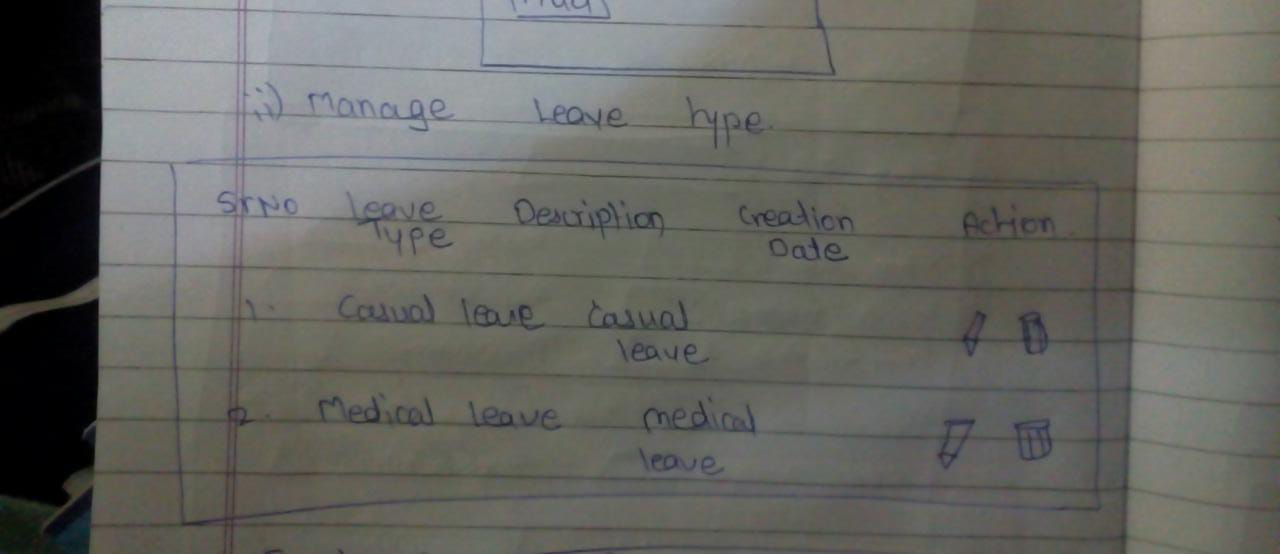 ii) Manage Leave Type.
Sr No Leave Type Description Creation Date Action
1. Casual leave Casual leave
2. Medical leave medical leave